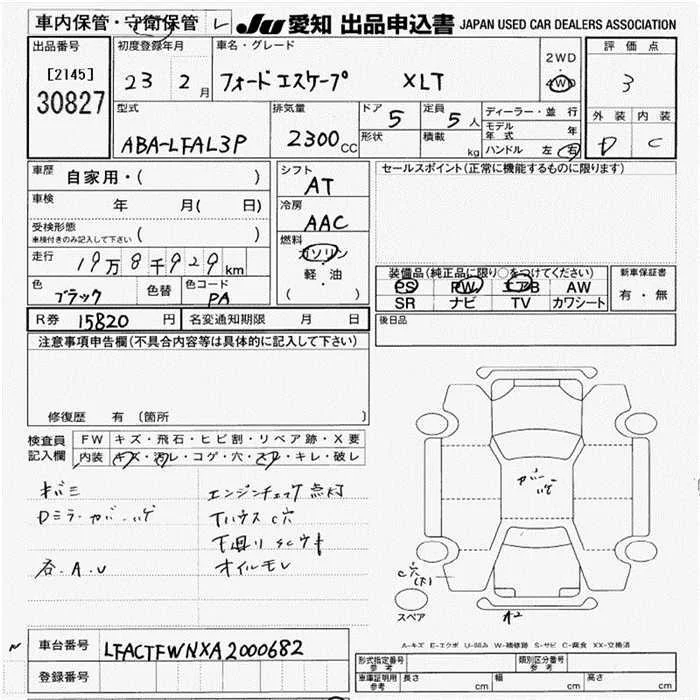 車内保管・守衛保管 レ JU 愛知 出品申込書 JAPAN USED CAR DEALERS ASSOCIATION
出品番号 初度登録年月 車名・グレード 評価点
[2145] 30827 23 2月 フォード エスケープ XLT 2WD 4WD 3
型式 排気量 ドア 定員 ディーラー・並行 外装 内装
ABA-LFAL3P 2300cc 5 5人 モデル年式 年 D C
形状 積載 kg ハンドル 左 右
車歴 自家用・( ) シフト セールスポイント(正常に機能するものに限ります)
AT
車検 年 月( 日) 冷房
受検形態 車検付きのみ記入して下さい ( ) AAC
走行 19万8千929km 燃料 ガソリン・軽油 ( )
装備品(純正品に限り○をつけてください) 新車保証書
色 ブラック 色替 色コード PA PS PW エアB AW 有・無
SR ナビ TV カワシート
R券 15820円 名変通知期限 月 日 後日品
注意事項申告欄(不具合内容等は具体的に記入して下さい)
修復歴 有 (箇所 )
検査員記入欄 FW キズ・飛石・ヒビ割・リペア跡・X要
内装 キズ・汚レ・コゲ・穴・スレ・キレ・破レ
キバミ エンジンチェック点灯
Dミラーカバーハゲ C穴
下廻りSCウキ
A・U オイルモレ
カバーハゲ
C穴(下)
スペア A2
A-キズ E-エクボ U-凹み W-補修跡 S-サビ C-腐食 XX-交換済
車台番号 LFACTFWNXA2000682
登録番号
形式指定番号 参考 類別区分番号 参考
車庫証明用 参考 長さ cm 幅 cm 高さ cm